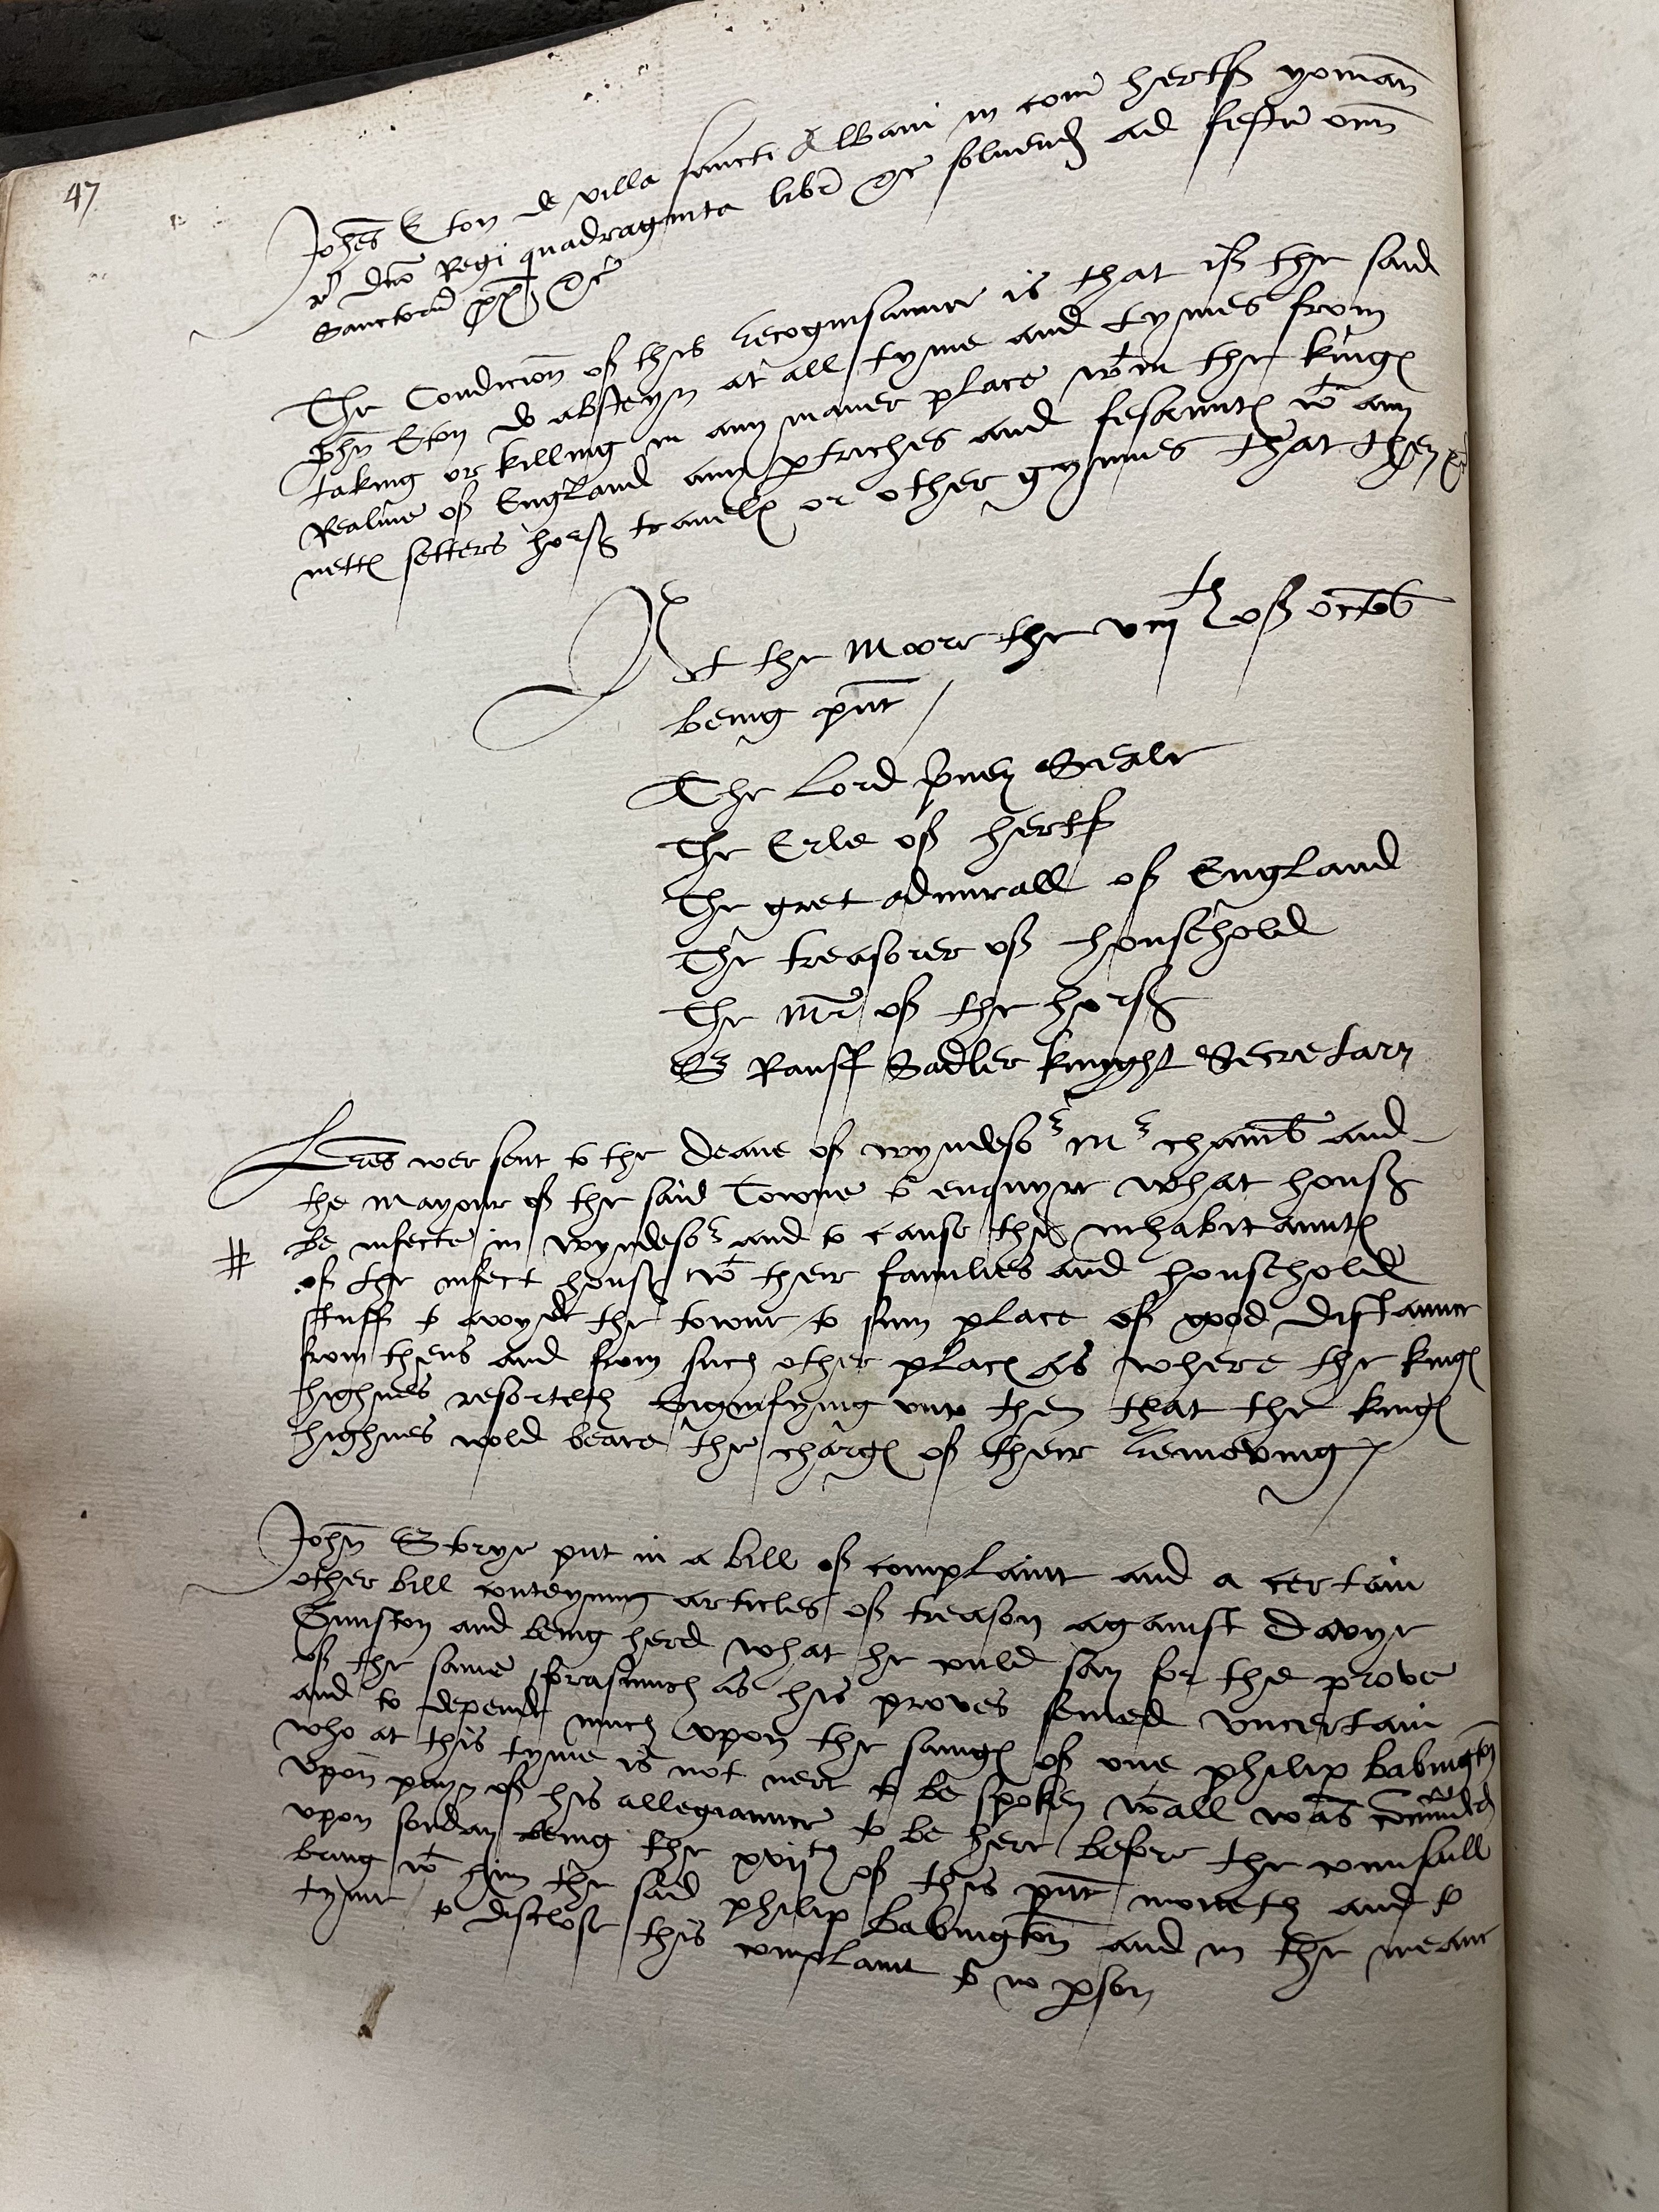 47
Johes Eton de villa sancti Albani in com hertf yoman
r dno Regi quadraginta libr &c solvend ad festu omn
Sanctoru px &c
The Condicion of this recognisaunce is that if the said
John Eton do absteyn at all tyme and tymes from
taking or killing in any maner place wtin the kinges
Realme of England any ptriches and fesauntes wt any
nettes setters horse tramelles or other gynnes that then &c
At the Moore the viijth of Octob
being pnt /
The Lord privey Seale
The Erle of hertf
The gret admirall of England
The treasorer of household
The Mr of the horse
Sr Rauff Sadler knyght Secretary
Lres wer sent to the Deane of wyndesor Mr chamb and
the Mayour of the said Towne to enquyre what houses
be infecte in wyndesor and to cause the inhabitauntes
# of the infect houses wt their families and household
stuff to avoyde the towne to sum place of good distaunce
from thens and from such other places as where the kinges
highnes resorteth Signifying unto them that the kinges
highnes wold beare the charges of their removing /
John Storye put in a bill of complaint and a certain
other bill conteyning articles of treason against Davye
Gunston and being herd what he culd say for the prove
of the same forasmuch as his proves semed uncertain
and to depende much upon the sainges of one philip babington
who at this tyme is not nere to be spoken wtall was comaunded
upon payn of his allegiaunce to be here before the counsaill
upon sonday being the xvijth of this pnt moneth and to
bring wt him the said philip babington and in the meane
tyme to disclose this complaint to no pson